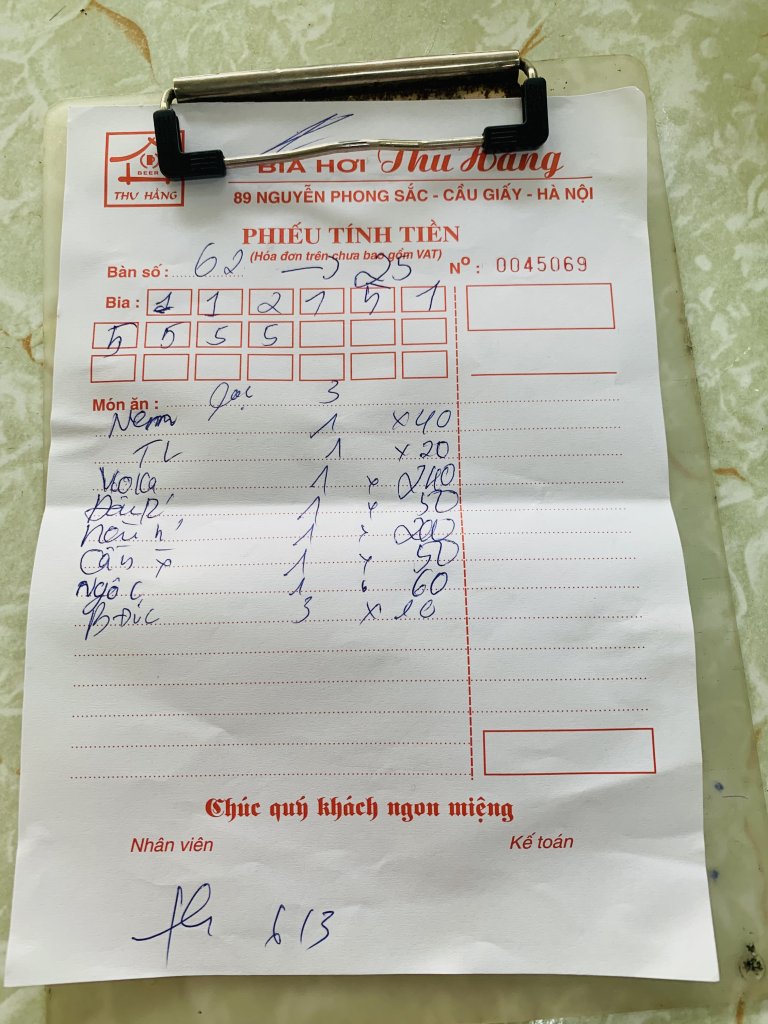 BEER
THƯ HẰNG
BIA HƠI Thu Hằng
89 NGUYỄN PHONG SẮC - CẦU GIẤY - HÀ NỘI
PHIẾU TÍNH TIỀN
(Hóa đơn trên chưa bao gồm VAT)
Bàn số : 62 → 25
Nº : 0045069
Bia : 1 1 2 1 5 1
5 5 5 5
Món ăn : Lạc 3
Nem 1 x 40
TL 1 x 20
Voka 1 x 240
1 x 50
1 x 200
1 x 50
Ngô C 1 60
B Đúc 3 x 10
Chúc quý khách ngon miệng
Nhân viên
Kế toán
6/3